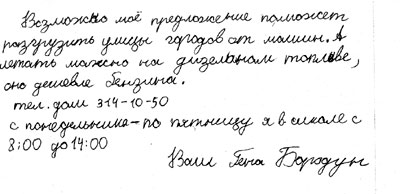 Возможно моё предложение поможет
разгрузить улицы городов от машин. А
летать можно на дизельном топливе,
оно дешевле бензина.
тел. дом 314-10-50
с понедельника - по пятницу я в школе с
8:00 до 14:00
Ваш Гена Бородун